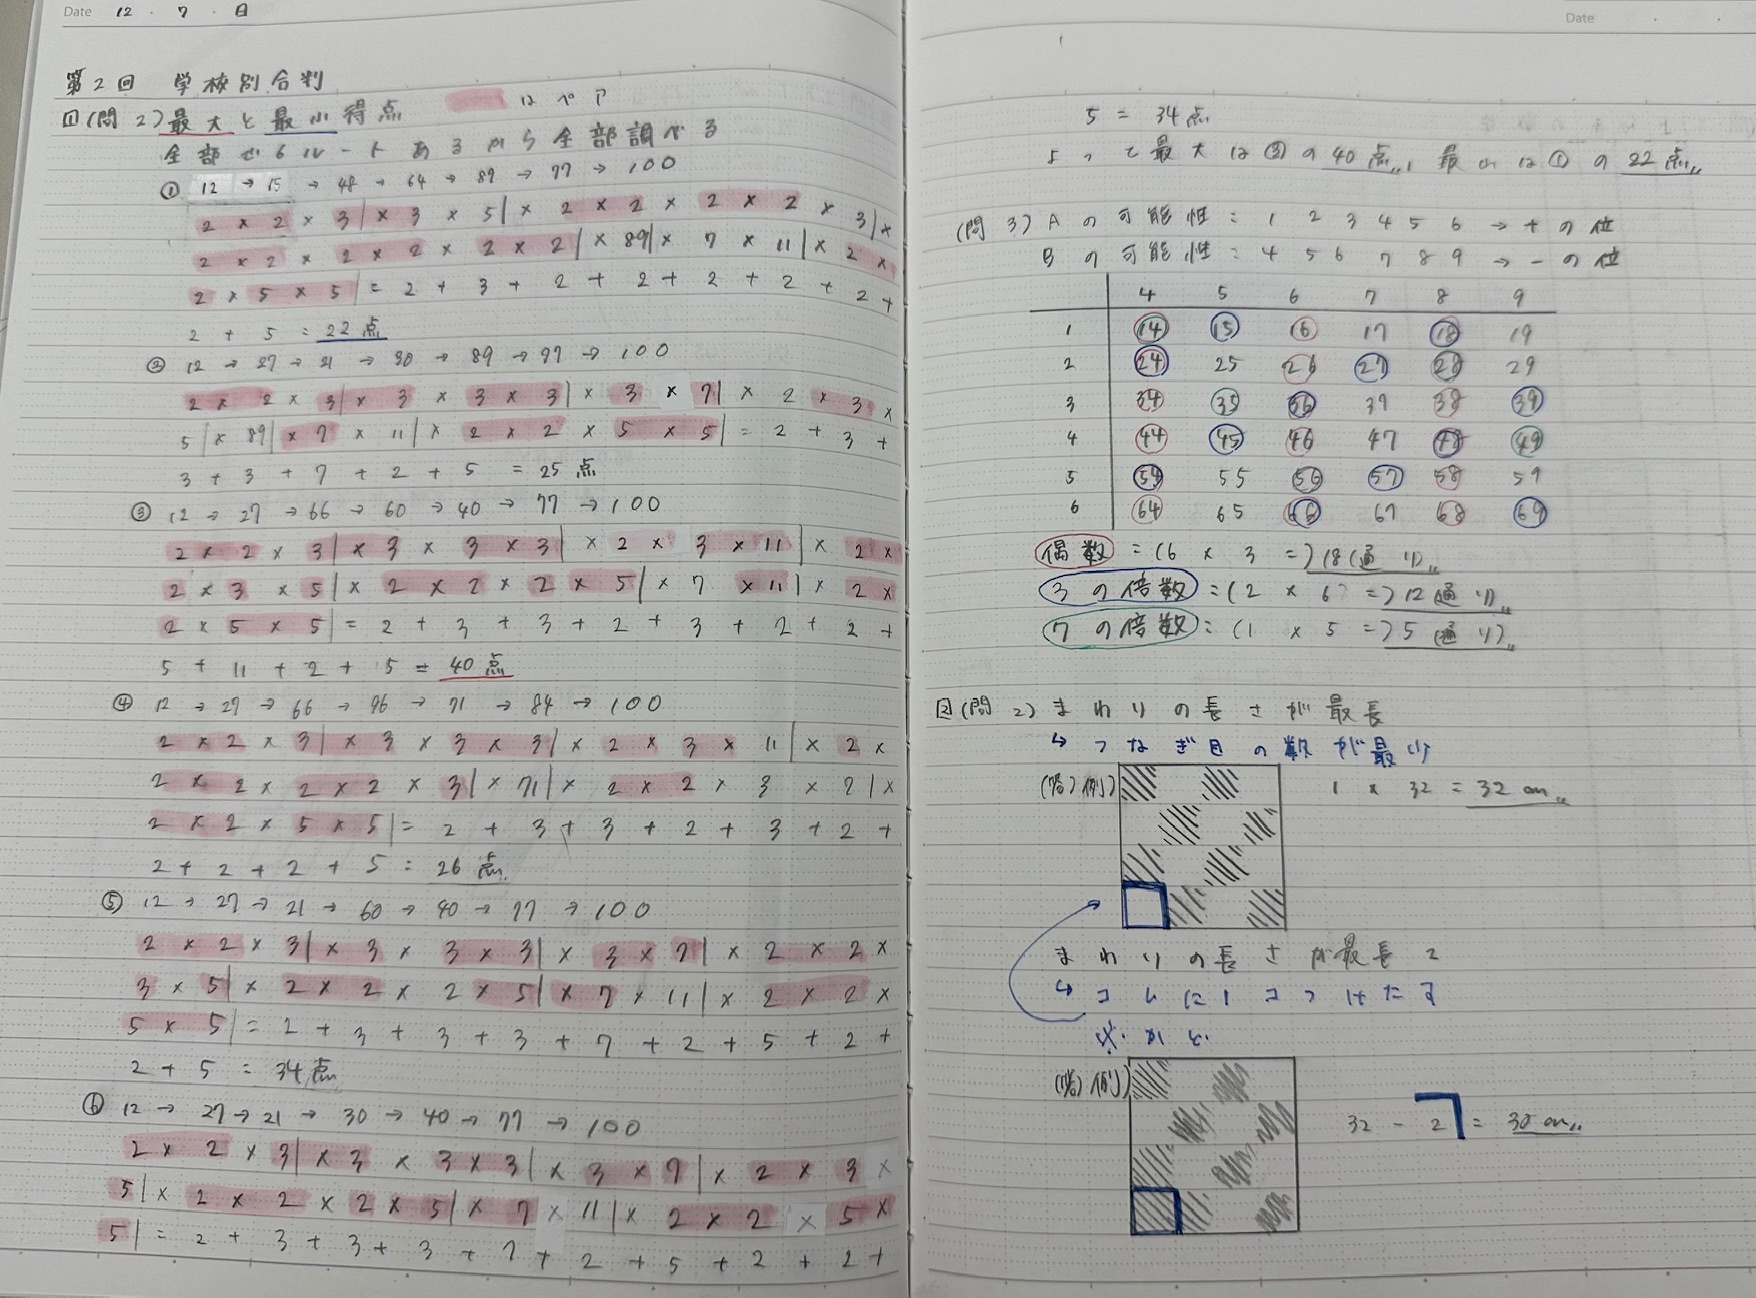 Date 12 · 7 · 日
第2回 学校別合判
1(問2)最大と最小得点 はペア
全部で6ルートあるから全部調べる
① 12 → 15 → 48 → 64 → 89 → 77 → 100
2 × 2 × 3 | × 3 × 5 | × 2 × 2 × 2 × 2 × 3 | ×
2 × 2 × 2 × 2 × 2 × 2 | × 89 | × 7 × 11 | × 2 ×
2 × 5 × 5 | = 2 + 3 + 2 + 2 + 2 + 2 + 2 +
2 + 5 = 22点
② 12 → 27 → 21 → 30 → 89 → 77 → 100
2 × 2 × 3 | × 3 × 3 × 3 | × 3 × 7 | × 2 × 3 ×
5 | × 89 | × 7 × 11 | × 2 × 2 × 5 × 5 | = 2 + 3 +
3 + 3 + 7 + 2 + 5 = 25点
③ 12 → 27 → 66 → 60 → 40 → 77 → 100
2 × 2 × 3 | × 3 × 3 × 3 | × 2 × 3 × 11 | × 2 ×
2 × 3 × 5 | × 2 × 2 × 2 × 5 | × 7 × 11 | × 2 ×
2 × 5 × 5 | = 2 + 3 + 3 + 2 + 3 + 2 + 2 +
5 + 11 + 2 + 5 = 40点
④ 12 → 27 → 66 → 96 → 71 → 84 → 100
2 × 2 × 3 | × 3 × 3 × 3 | × 2 × 3 × 11 | × 2 ×
2 × 2 × 2 × 2 × 3 | × 71 | × 2 × 2 × 3 × 7 | ×
2 × 2 × 5 × 5 | = 2 + 3 + 3 + 2 + 3 + 2 +
2 + 2 + 2 + 5 = 26点
⑤ 12 → 27 → 21 → 60 → 40 → 77 → 100
2 × 2 × 3 | × 3 × 3 × 3 | × 3 × 7 | × 2 × 2 ×
3 × 5 | × 2 × 2 × 2 × 5 | × 7 × 11 | × 2 × 2 ×
5 × 5 | = 2 + 3 + 3 + 3 + 7 + 2 + 5 + 2 +
2 + 5 = 34点
⑥ 12 → 27 → 21 → 30 → 40 → 77 → 100
2 × 2 × 3 | × 3 × 3 × 3 | × 3 × 7 | × 2 × 3 ×
5 | × 2 × 2 × 2 × 5 | × 7 × 11 | × 2 × 2 × 5 ×
5 | = 2 + 3 + 3 + 3 + 7 + 2 + 5 + 2 + 2 +
Date
5 = 34点
よって最大は③の40点, 最小は①の22点
(問3) Aの可能性: 1 2 3 4 5 6 → 十の位
Bの可能性: 4 5 6 7 8 9 → 一の位
4 5 6 7 8 9
1 14 15 16 17 18 19
2 24 25 26 27 28 29
3 34 35 36 37 38 39
4 44 45 46 47 48 49
5 54 55 56 57 58 59
6 64 65 66 67 68 69
偶数 = (6 × 3 =) 18(通り)
3の倍数 : (2 × 6 =) 12(通り)
7の倍数 : (1 × 5 =) 5(通り)
2(問2) まわりの長さが最長
↳ つなぎ目の数が最小
(答)(例) 1 × 32 = 32 cm
まわりの長さが最長2
↳ コレに1コつけたす
※かど
(答)(例) 32 - 2 = 30 cm